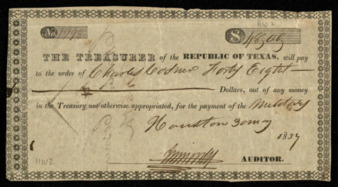 No.
$ 48
THE TREASURER of the REPUBLIC OF TEXAS, will pay
to the order of Charles Forty Eight
Dollars, out of any money
in the Treasury not otherwise appropriated, for the payment of the Military
Houston 1837
AUDITOR.